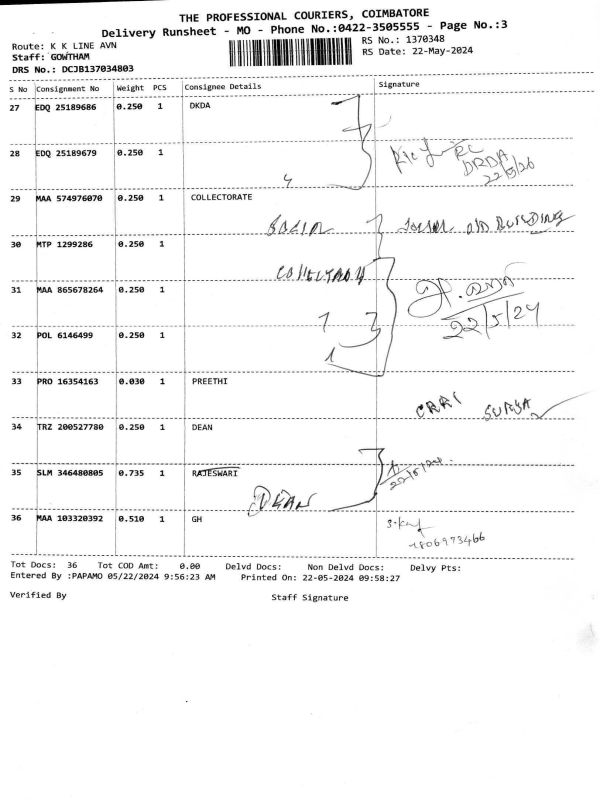 THE PROFESSIONAL COURIERS, COIMBATORE
Delivery Runsheet - MO - Phone No.:0422-3505555 - Page No.:3
Route: K K LINE AVN
RS No.: 1370348
Staff: GOWTHAM
RS Date: 22-May-2024
DRS No.: DCJB137034803
S No Consignment No Weight PCS Consignee Details Signature
27 EDQ 25189686 0.250 1 DKDA
28 EDQ 25189679 0.250 1
RC
DRDA
4
29 MAA 574976070 0.250 1 COLLECTORATE
30 MTP 1299286 0.250 1
31 MAA 865678264 0.250 1
22/5/24
32 POL 6146499 0.250 1
33 PRO 16354163 0.030 1 PREETHI
CRRI SURYA
34 TRZ 200527780 0.250 1 DEAN
35 SLM 346480805 0.735 1 RAJESWARI
DEAN
36 MAA 103320392 0.510 1 GH
Tot Docs: 36 Tot COD Amt: 0.00 Delvd Docs: Non Delvd Docs: Delvy Pts:
Entered By :PAPAMO 05/22/2024 9:56:23 AM Printed On: 22-05-2024 09:58:27
Verified By Staff Signature